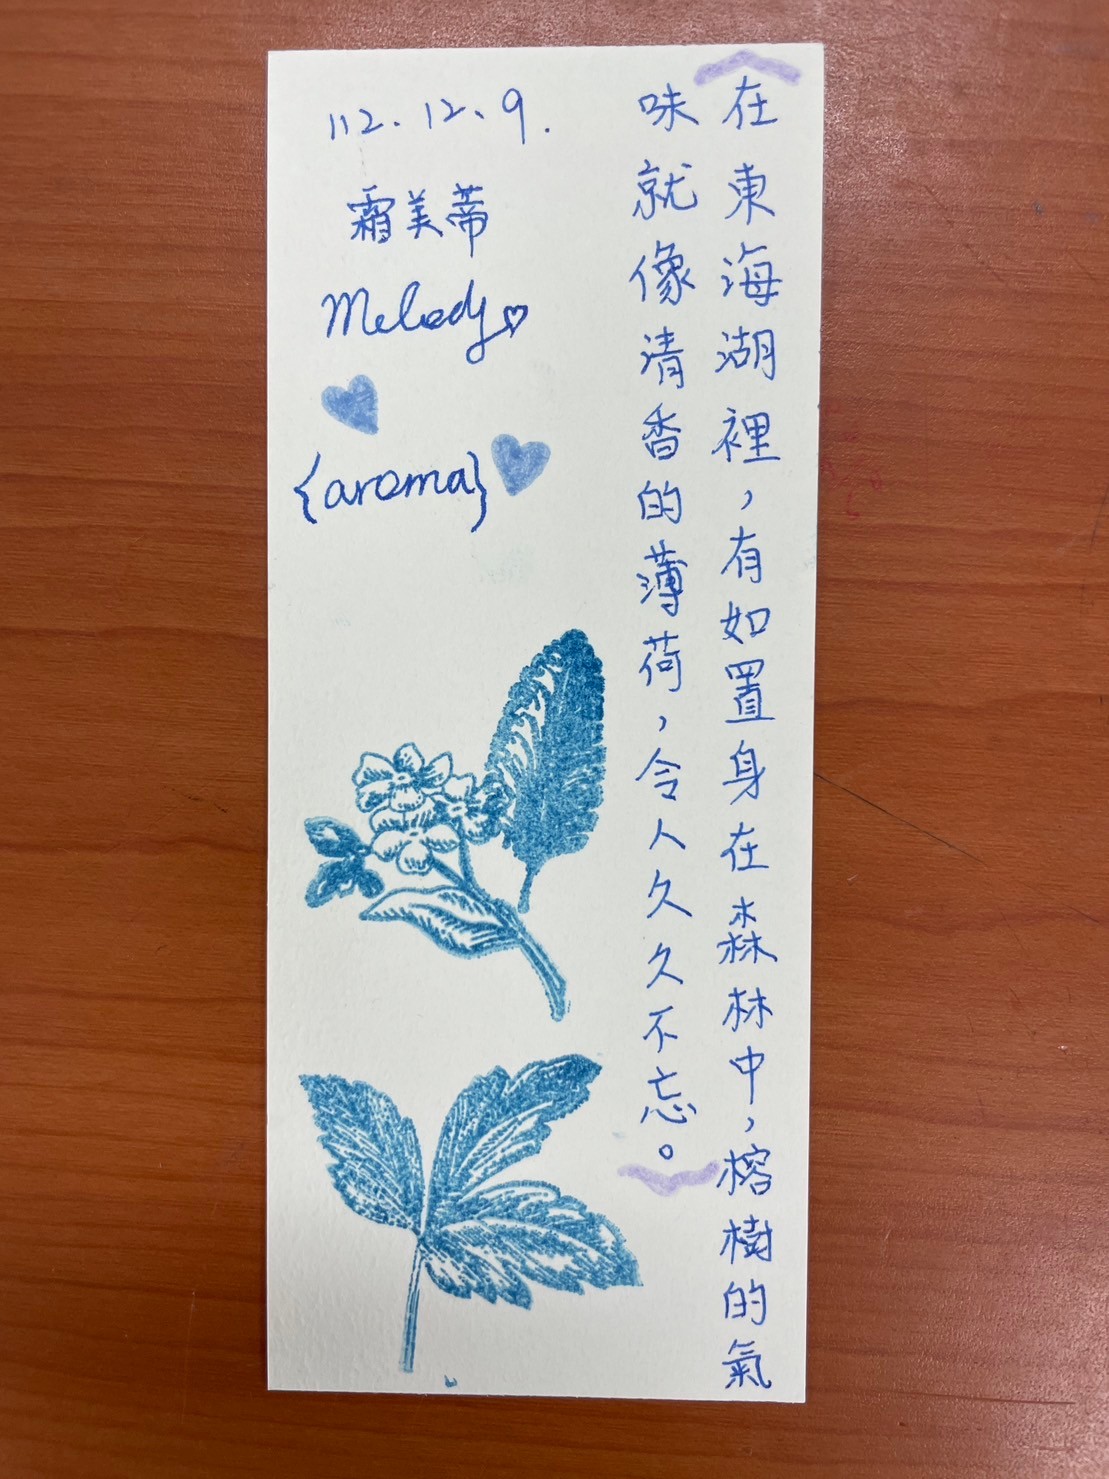 在東海湖裡，有如置身在森林中，榕樹的氣
味就像清香的薄荷，令人久久不忘。
112.12.9.
霜美蒂
Melody
{aroma}